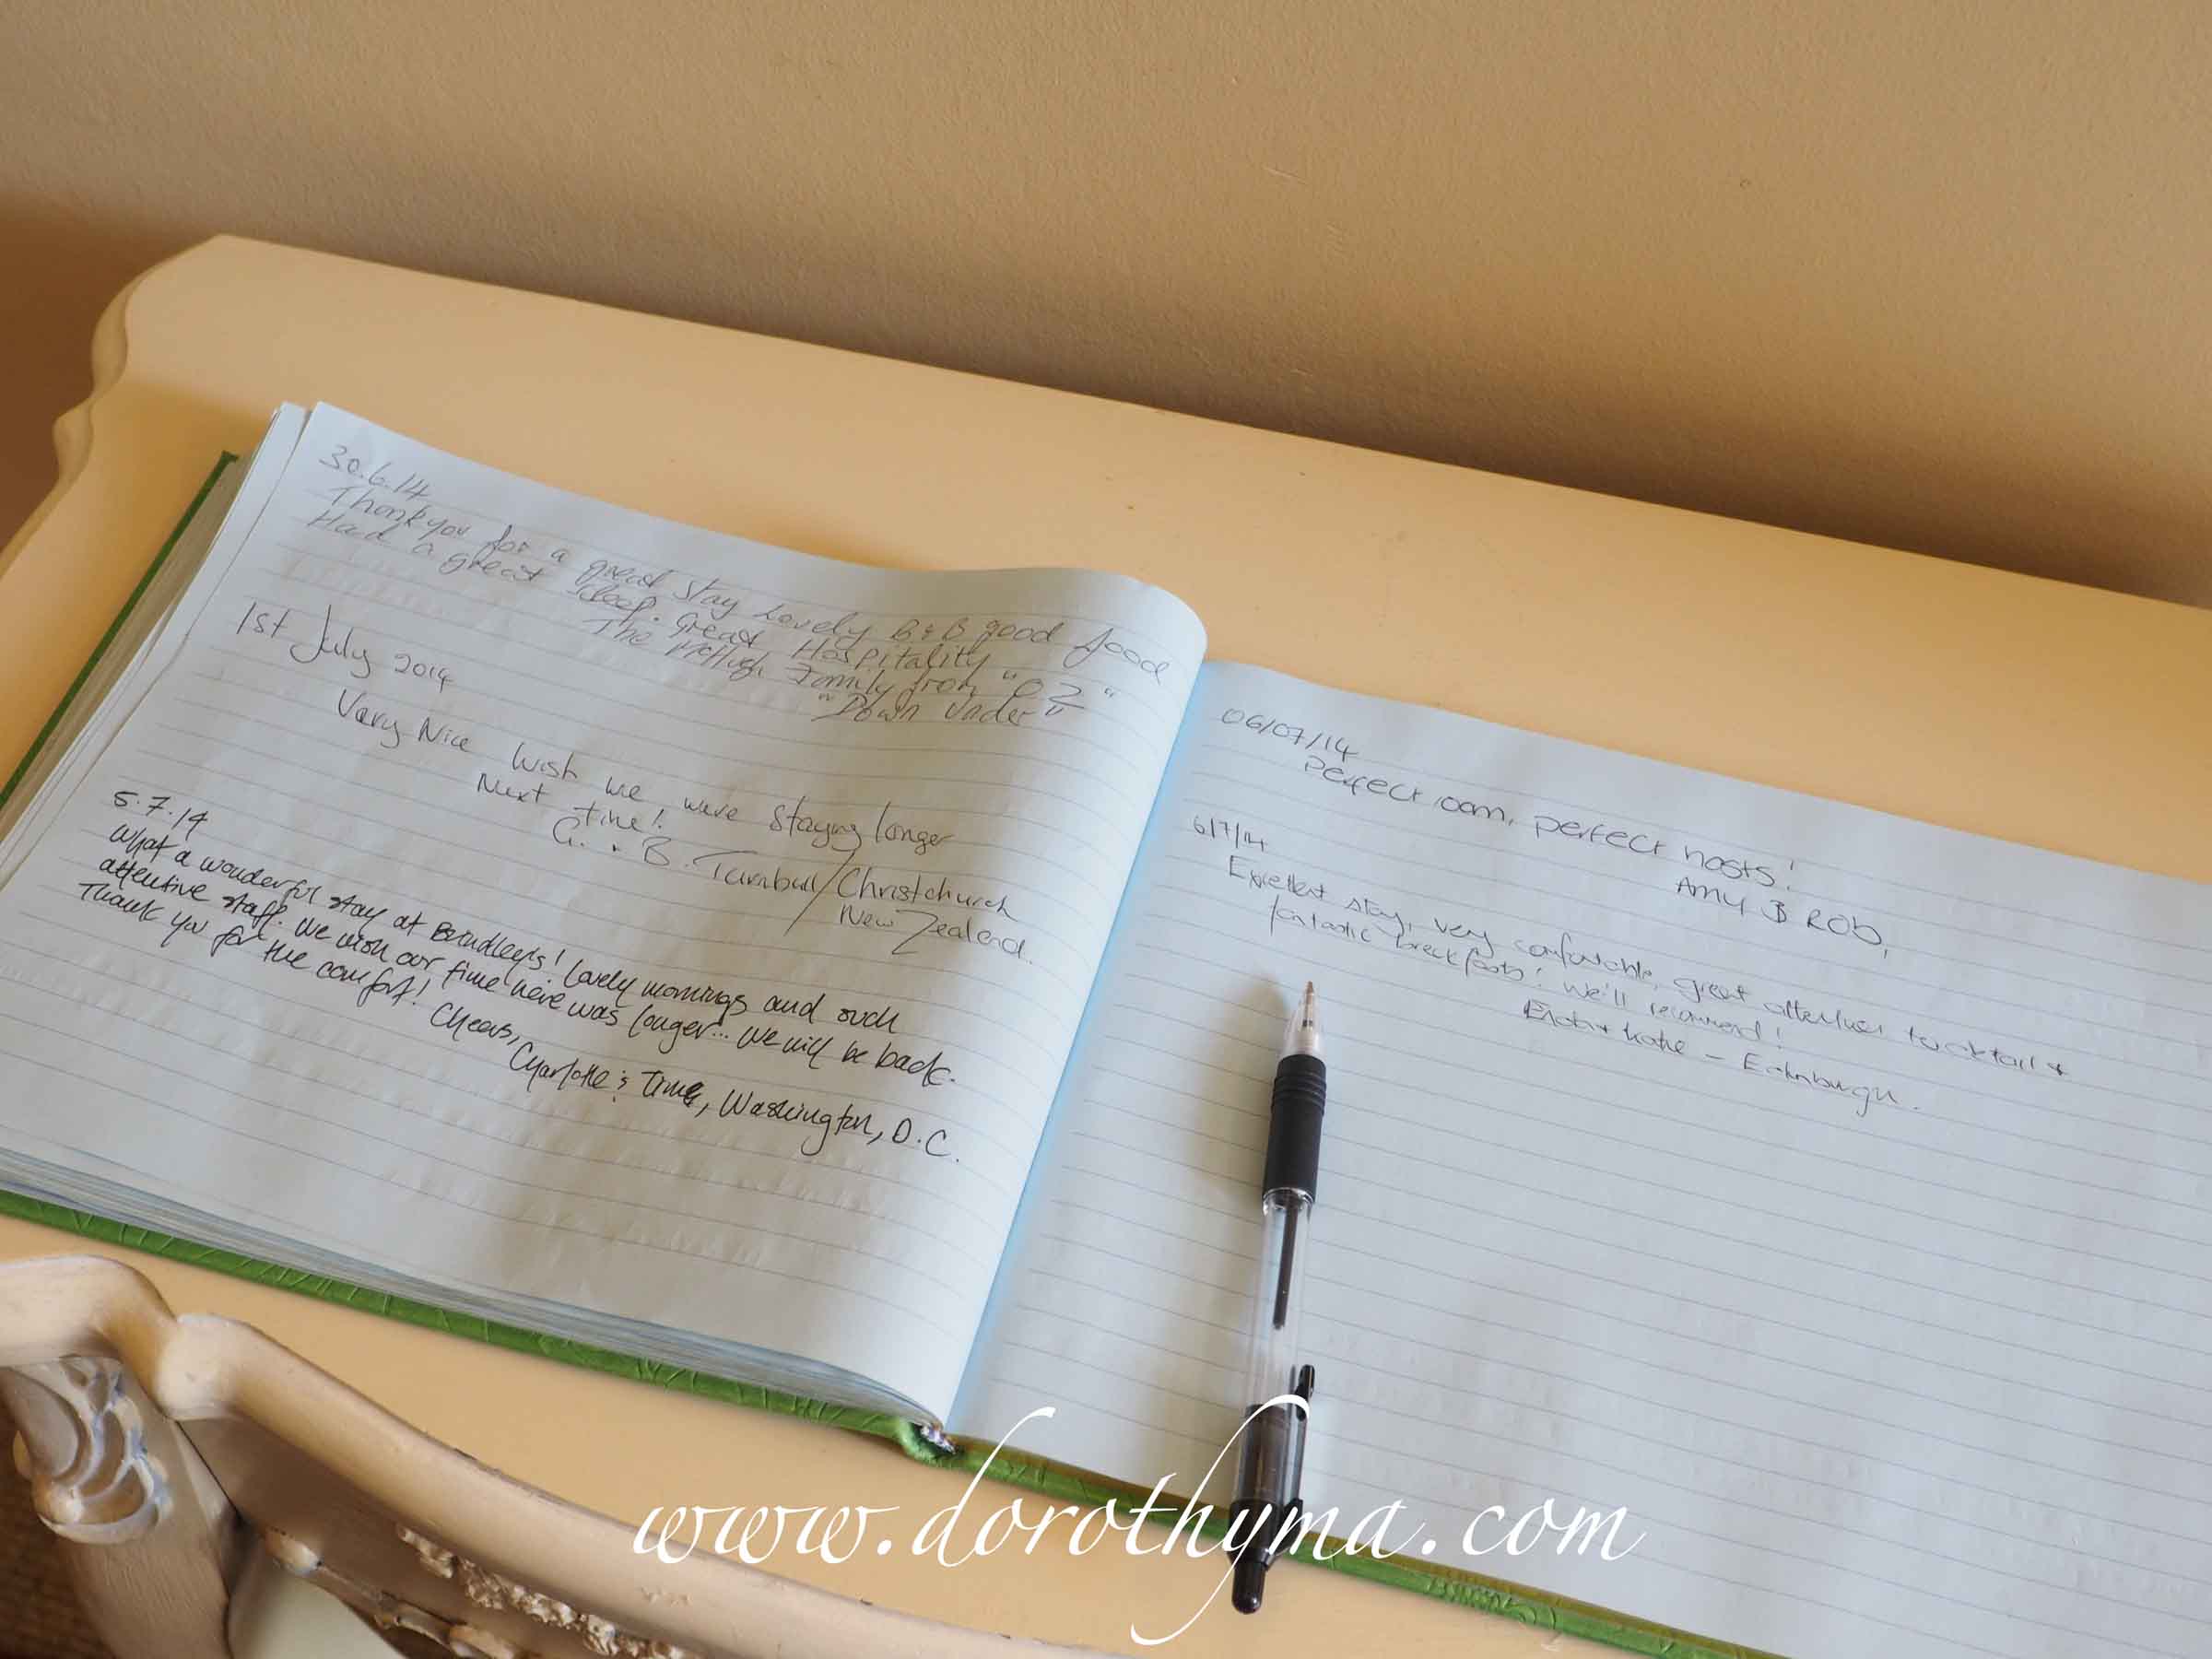 30.6.14
Thankyou for a great stay Lovely B&B good food
Had a great sleep. Great Hospitality
The McHugh Family from "OZ"
"Down Under"
1st July 2014
Very Nice Wish we were staying longer
Next time!
G. & B. Turnbull/Christchurch
New Zealand.
5.7.14
What a wonderful stay at Brindleys! Lovely mornings and such
attentive staff. We wish our time here was longer... We will be back.
Thank you for the comfort! Cheers,
Charlotte & Washington, D.C.
06/07/14
Perfect room, perfect hosts!
Amy & ROB,
6/7/14
Excellent stay, very comfortable, great attention to cocktails &
fantastic breakfasts! We'll recommend!
Katie - Edinburgh.
www.dorothyma.com